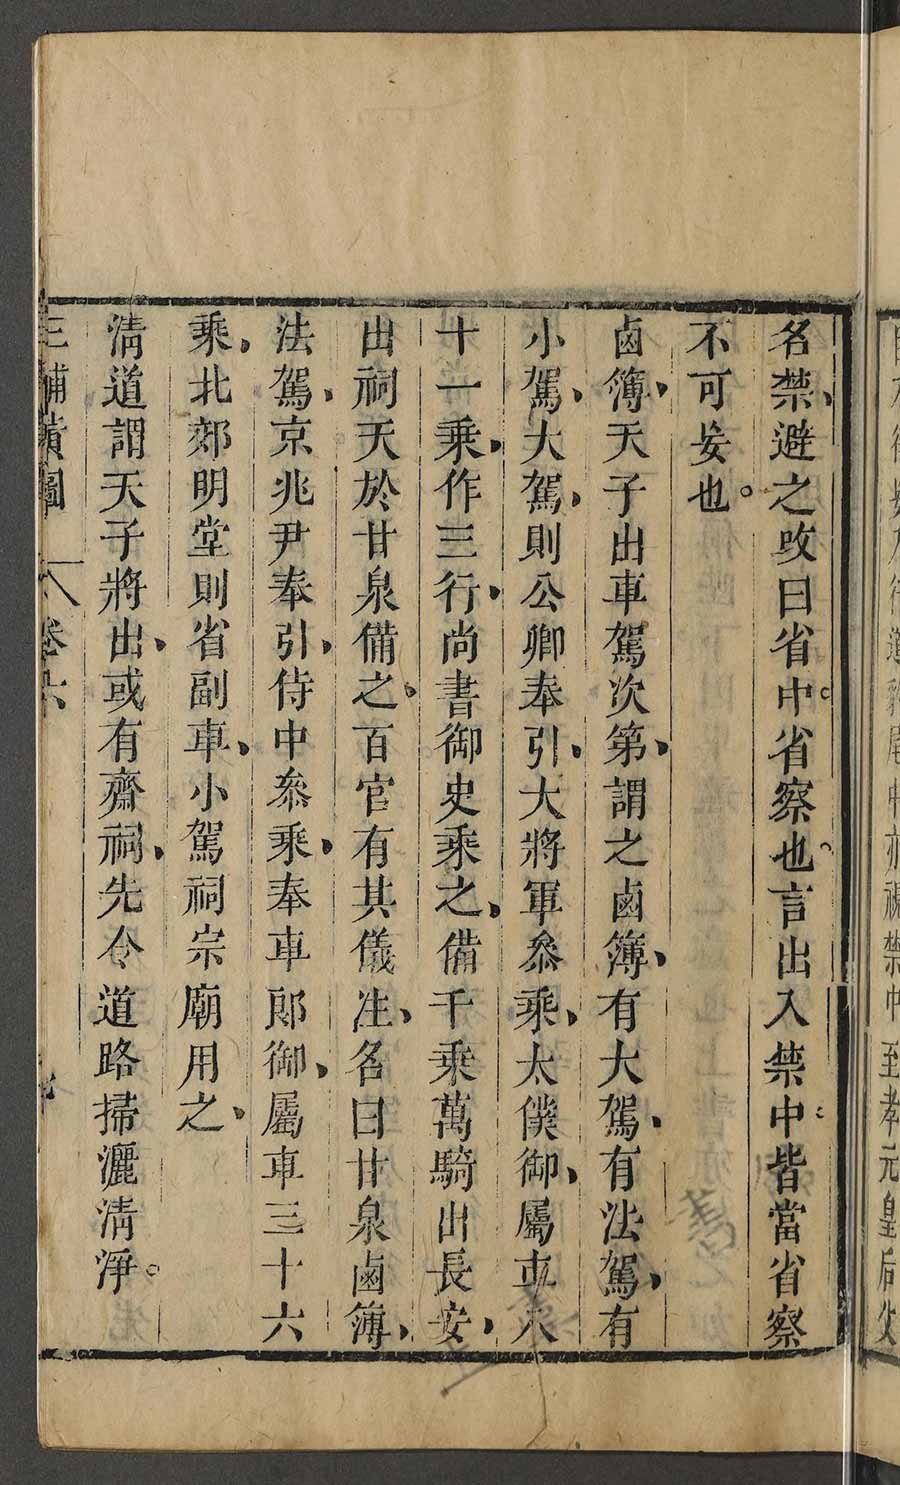 中亦視禁中至孝元皇后父
名禁避之攺曰省中省察也言出入禁中皆當省察
不可妄也
鹵簿天子出車駕次第謂之鹵簿有大駕有法駕有
小駕大駕則公卿奉引大將軍叅乘太僕御屬車八
十一乘作三行尚書御史乘之備千乘萬騎出長安
出祠天於甘泉備之百官有其儀注名曰甘泉鹵簿
法駕京兆尹奉引侍中叅乘奉車郎御屬車三十六
乘北郊明堂則省副車小駕祠宗廟用之
清道謂天子將出或有齋祠先令道路掃灑清淨
三輔黃圖 卷六